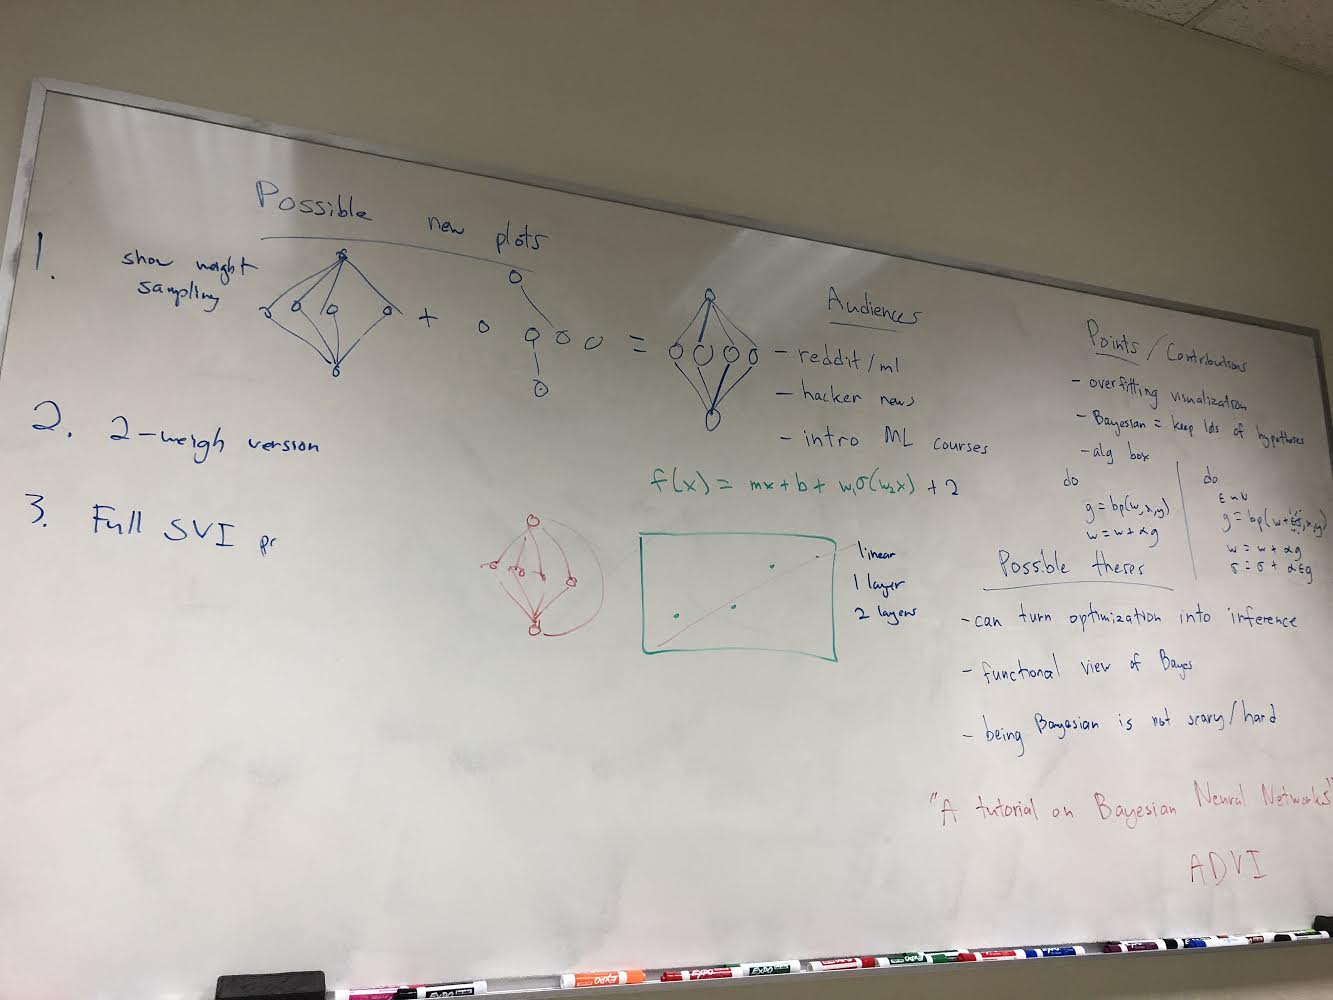 Possible new plots
1.
show weight
sampling
+
=
2. 2-weigh version
3. Full SVI pr
Audiences
- reddit/ml
- hacker news
- intro ML courses
f(x) = mx + b + w₁σ(w₂x) + 2
linear
1 layer
2 layers
Points / Contributions
- overfitting visualization
- Bayesian = keep lds of hypotheses
- alg box
do
g = bp(w, x, y)
w = w + αg
do
ε ~ N
g = bp(w + εσ, x, y)
w = w + αg
σ = σ + αεg
Possible theses
- can turn optimization into inference
- functional view of Bayes
- being Bayesian is not scary/hard
"A tutorial on Bayesian Neural Networks"
ADVI
EXPO
EXPO
EXPO